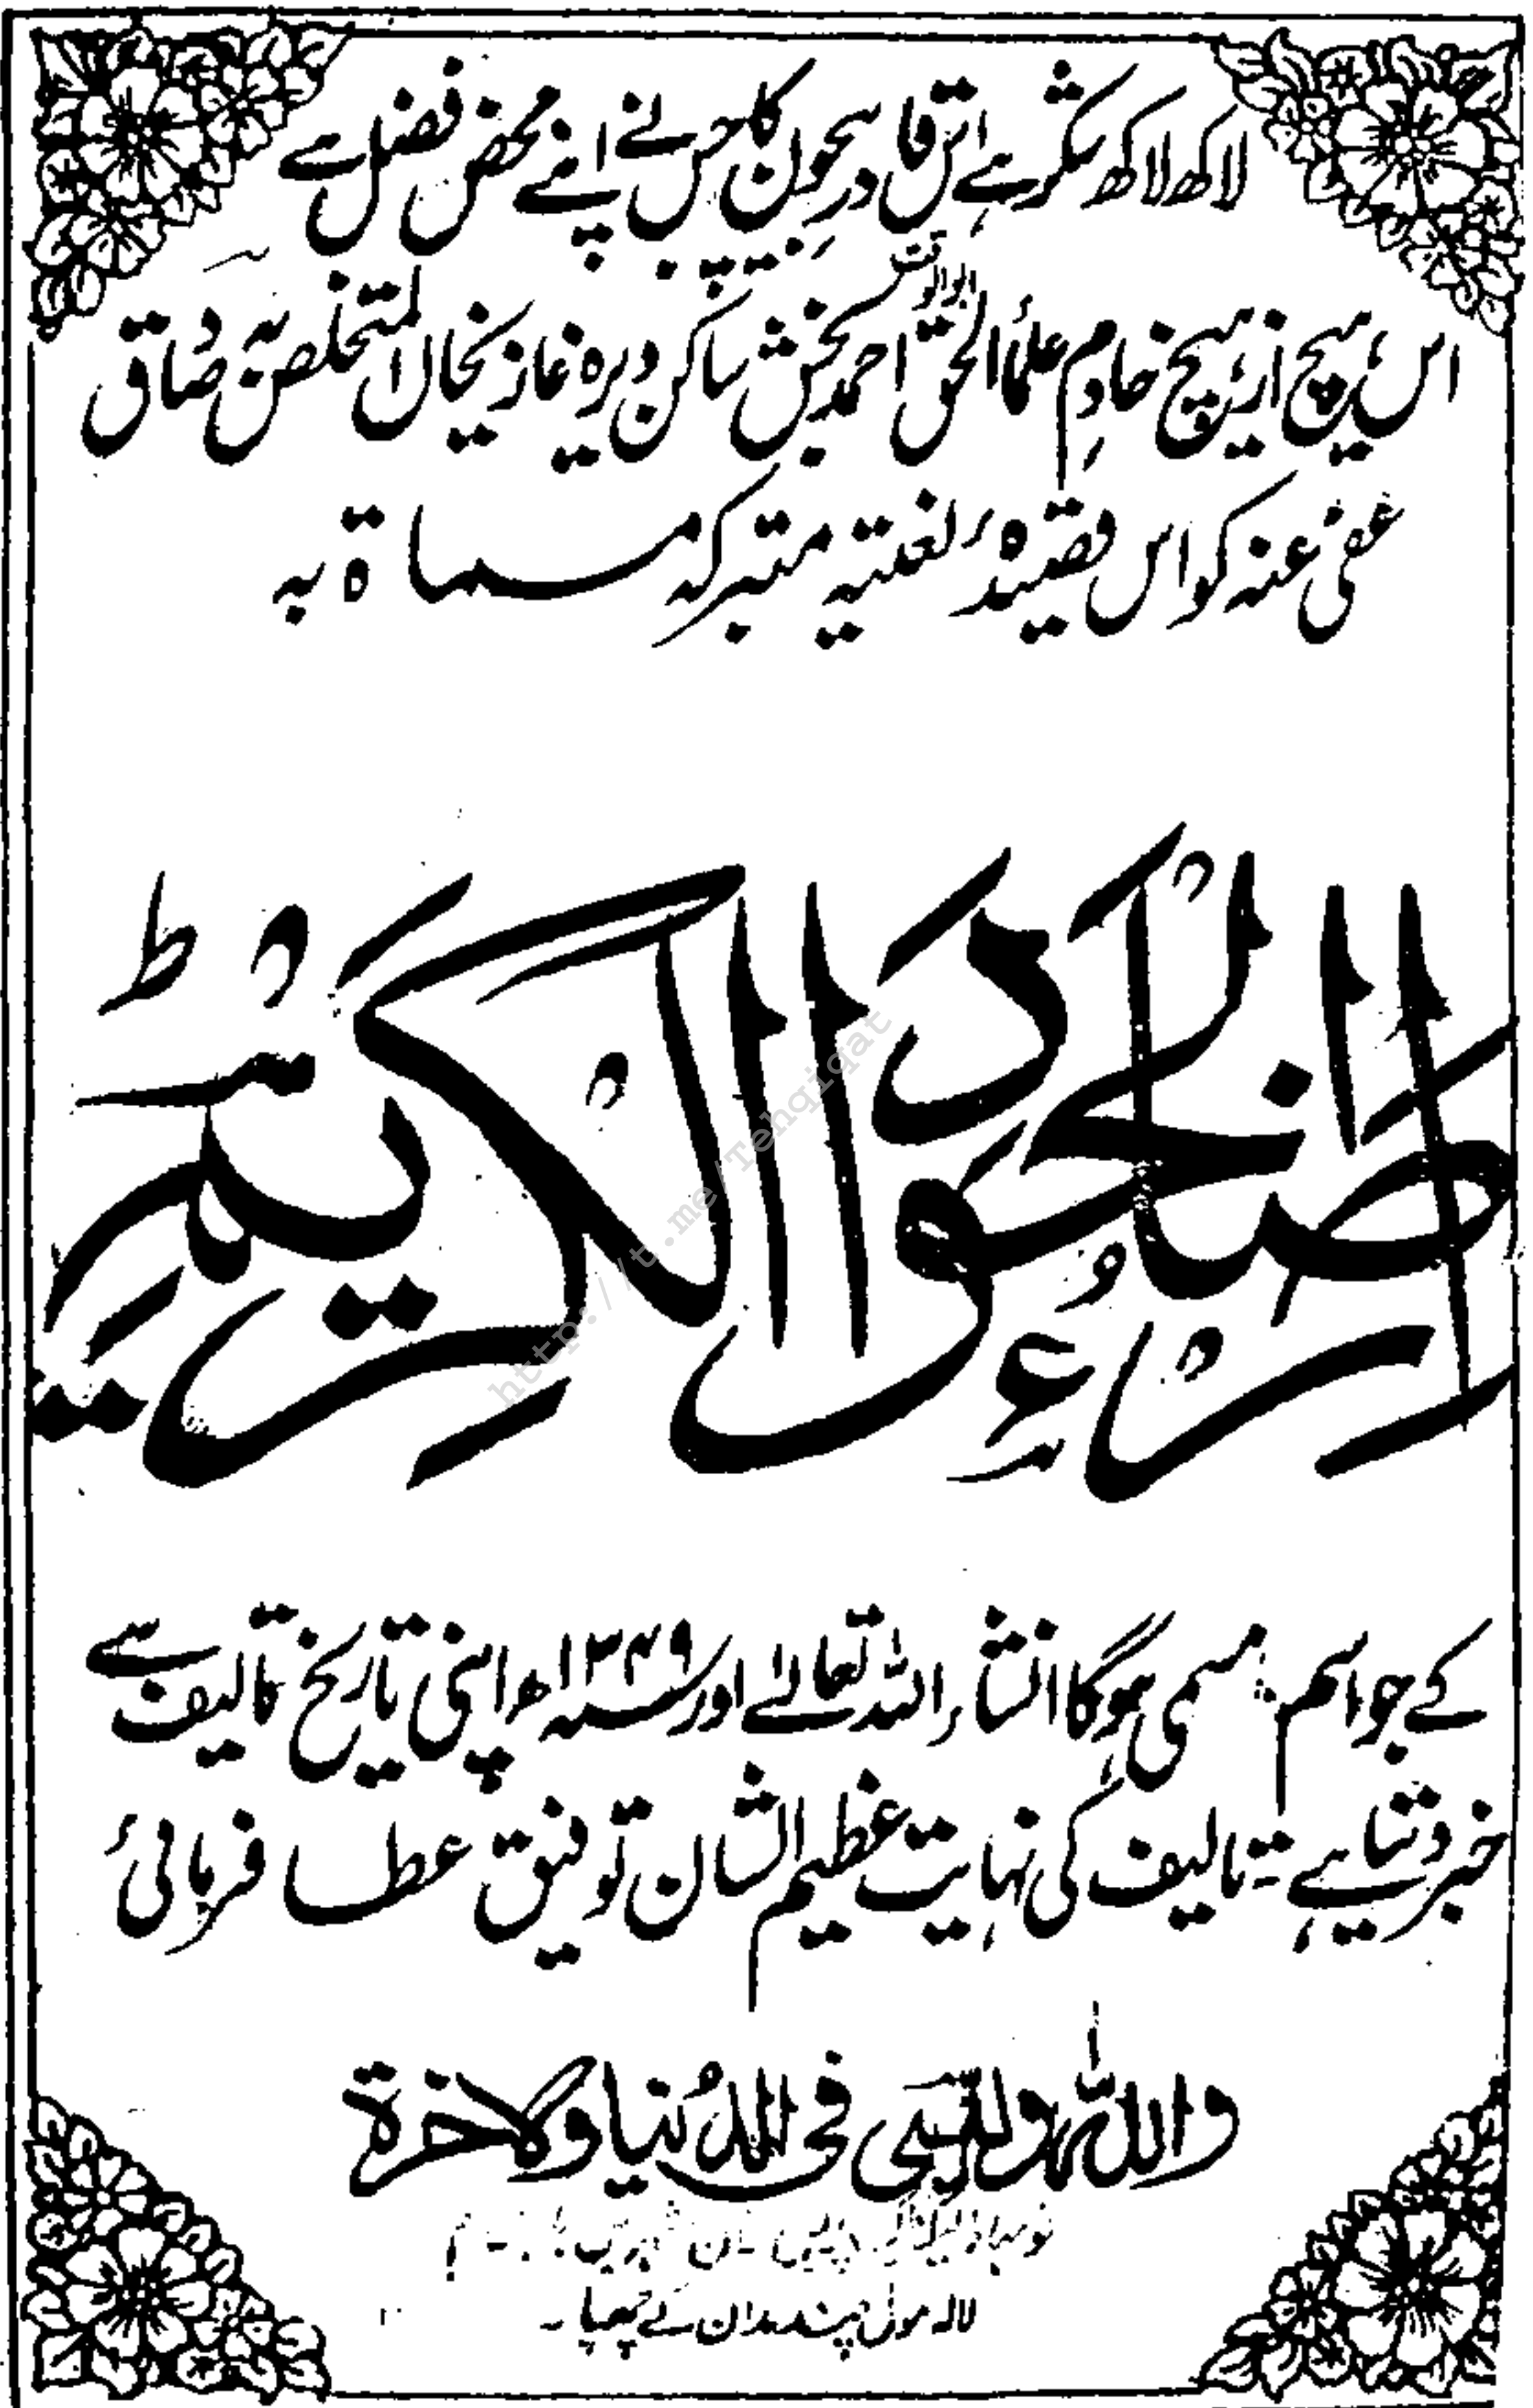 لاکھ لاکھ شکر ہے اس قادر بیچون کا جس نے اپنے محض فضل سے
اس ہیچ از ہیچ خادم علماء الحق احمد بخش ساکن ڈیرہ غازیخاں المتخلص بہ صادق
عفی عنہ کو اس فقیدہ نعتیہ متبرکہ مسماۃ بہ
الکریم
کے جو اسم مسمی ہوگا انشاء اللہ تعالے اور سنہ ۱۳۴۹ھ اپنی تاریخ تالیف سے
خبر دیتا ہے تالیف کی نہایت عظیم الشان توفیق عطا فرمائی
واللہ ولیی فی الدنیا والاخرۃ
لالہ مول چند مدان نے چھپا
http://t.me/Tehqiqat